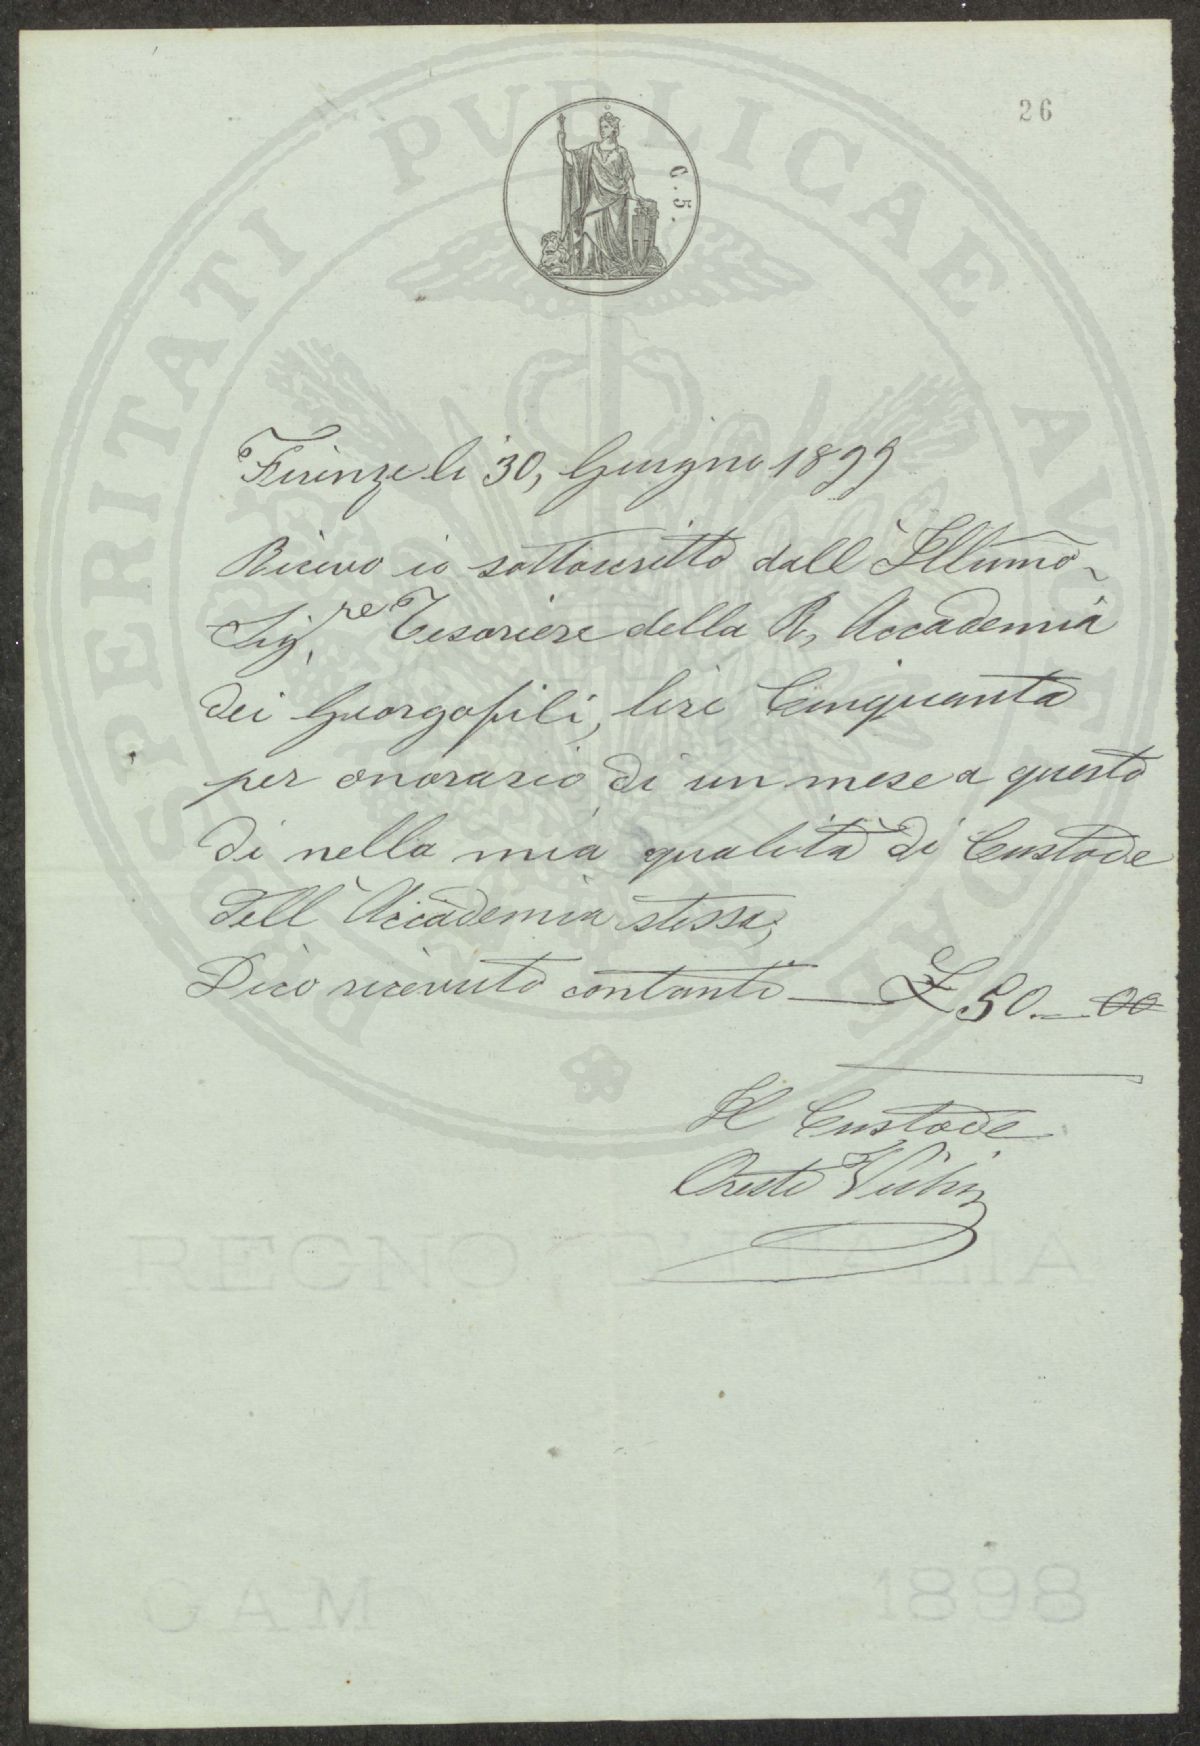 26
C. 5.
PROSPERITATI PUBLICAE AUGENDAE
Firenze li 30, Giugno 1899
Ricevo io sottoscritto dall'Illumo
Sig.re Tesoriere della R. Accademia
dei Georgofili, lire Cinquanta
per onorario di un mese a questo
di nella mia qualità di Custode
dell'Accademia stessa,
Dico ricevuto contanti £ 50.—00
Il Custode
Oreste
REGNO D'ITALIA
GAM 1898